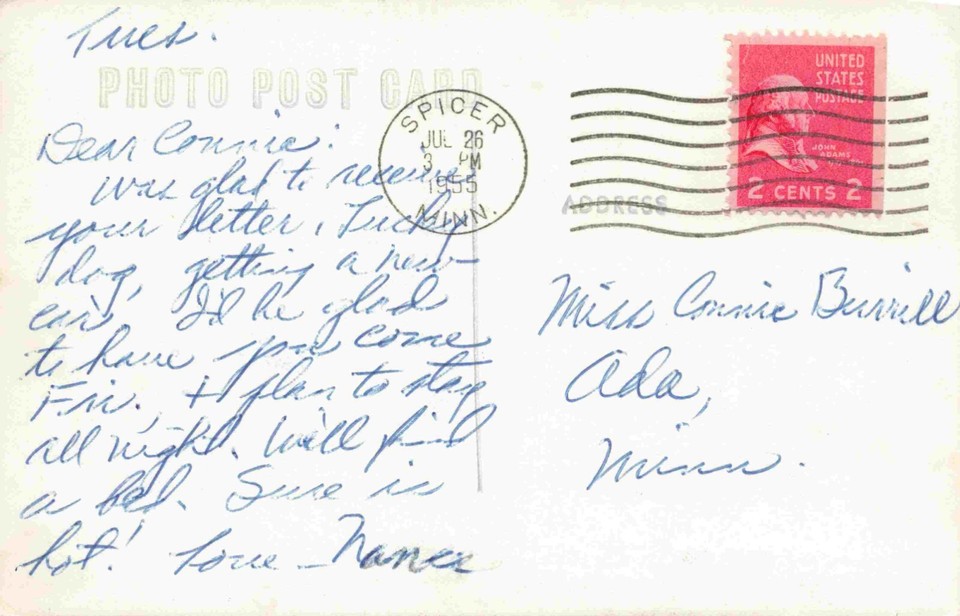 Tues.
PHOTO POST CARD
Dear Connie:
Was glad to receive
your letter. Lucky
dog, getting a new
car. I'd be glad
to have you come
Fri. + plan to stay
all night. Will find
a bed. Sure is
hot! Love — Nance
SPICER
JUL 26
3 PM
1955
MINN.
UNITED
STATES
POSTAGE
JOHN
ADAMS
2 CENTS 2
ADDRESS
Miss Connie Burrill
Ada,
Minn.